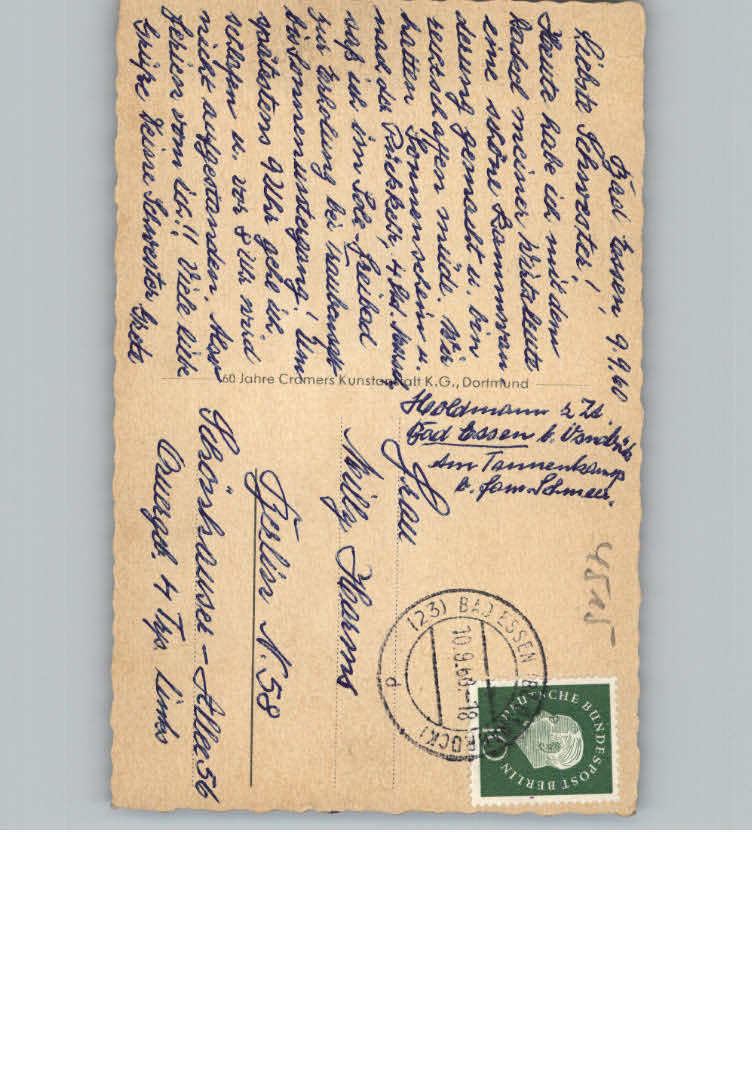 Bad Essen 9.9.60
Liebste Schwester!
Heute habe ich mit dem
Dackel meiner Wirtsleute
eine schöne Bammwan
derung gemacht u. bin
rechtschaffen müde. Wir
hatten Sonnenschein u.
nach der Rückkehr, 4 Std.
saß ich im Sole-Freibad
zur Erholung bei
bis Sonnenuntergang! Um
spätestens 9 Uhr gehe ich
schlafen u. vor 8 Uhr wird
nicht aufgestanden. Aber
Ferien vom Ich!! Viele liebe
Grüße Deine Schwester Grete
60 Jahre Cramers Kunstanstalt K.G., Dortmund
Holdmann z. Zt.
Bad Essen b.
Am Tannenkamp
b. Fam.
Frau
Milly Harms
Berlin N. 58
Schönhauser-Allee 56
Quergeb. 4 Trp. links
4515
(23) BAD ESSEN
10.9.60.-18
DEUTSCHE BUNDESPOST BERLIN